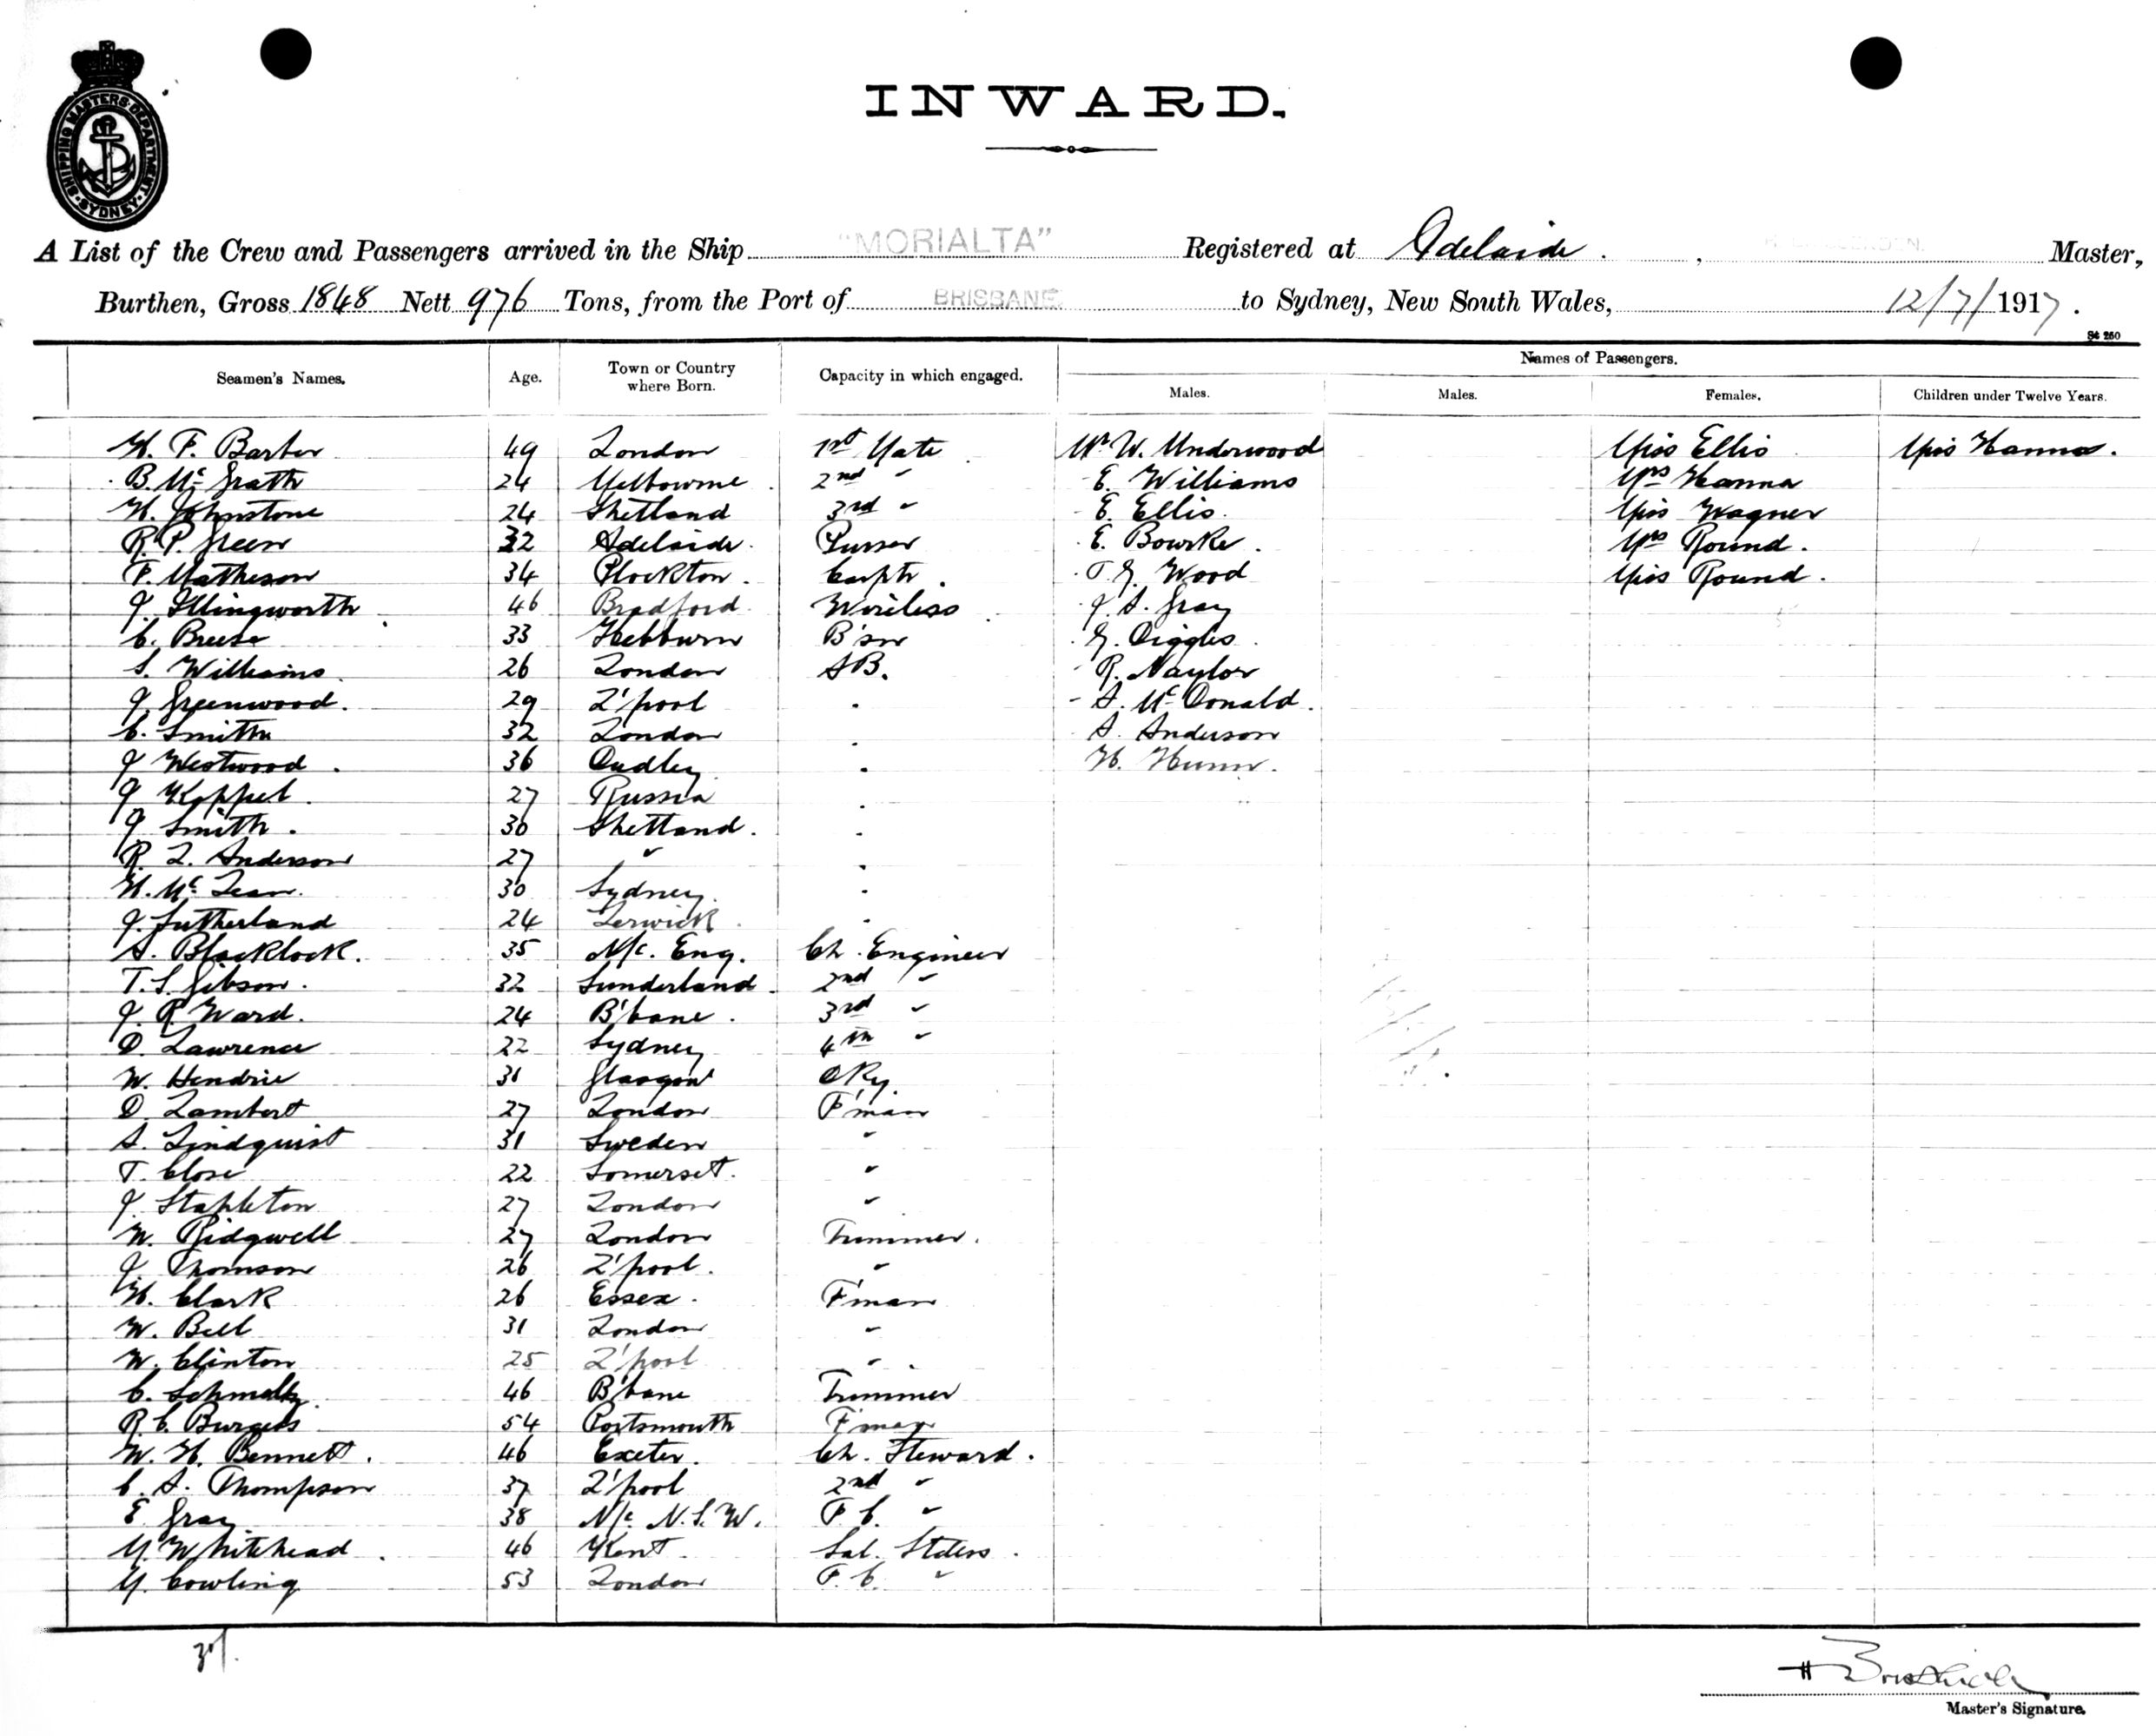 SHIPPING MASTERS DEPARTMENT
SYDNEY
INWARD.
A List of the Crew and Passengers arrived in the Ship "MORIALTA" Registered at Adelaide. , Master,
Burthen, Gross 1848 Nett 976 Tons, from the Port of BRISBANE to Sydney, New South Wales, 12/7/1917.
St 260
Seamen's Names. Age. Town or Country where Born. Capacity in which engaged. Names of Passengers.
Males. Males. Females. Children under Twelve Years.
H. F. Barber 49 London 1st Mate Mr W. Underwood Miss Ellis Miss Hanna.
B. Mc Grath 24 Melbourne 2nd " E. Williams Mrs Hanna
H. Johnstone 24 Shetland 3rd " E. Ellis. Miss Wagner
R. P. Green 32 Adelaide. Purser E. Bourke. Mrs Round.
F. Matheson 34 Plockton. Carptr. T. G. Wood Miss Round.
J. Illingworth 46 Bradford. Wireless J. A. Gray
C. Breese 33 Hebburn B'sn G. Diggles.
S. Williams 26 London AB. R. Naylor
J. Greenwood. 29 L'pool " A. Mc Donald.
C. Smith 32 London " A. Anderson
J Westwood. 36 Dudley " H. Hunn.
J Koppel. 27 Russia "
J Smith. 30 Shetland. "
R. L. Anderson 27 " "
H. Mc Lean. 30 Sydney. "
J. Sutherland 24 Lerwick "
A. Blacklock. 35 N/c. Eng. Ch. Engineer
T. S. Gibson. 32 Sunderland. 2nd "
J. R Ward. 24 B'bane. 3rd "
D. Lawrence 22 Sydney 4th "
W. Hendrie 31 Glasgow DKy.
D. Lambert 27 London F'man
A. Lindquist 31 Sweden "
T. Close 22 Somerset. "
J. Stapleton 27 London "
W. Ridgwell 27 London Trimmer.
J. Thomson 26 L'pool. "
H. Clark 26 Essex. F'man
W. Bell 31 London "
W. Clinton 25 L'pool "
C. Schmaltz 46 B'bane Trimmer
R. C. Burgess 54 Portsmouth F'man
W. H. Bennett. 46 Exeter. Ch. Steward.
C. A. Thompson 37 L'pool 2nd "
E Gray 38 N/c. N.S.W. F. C. "
M. Whitehead. 46 Kent. Sal. Stdess.
M. Cowling 53 London F. C. "
37.
Master's Signature.